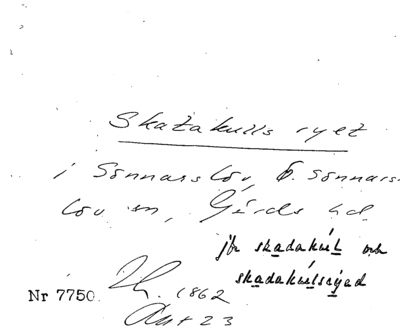 Skatakulls ryet
i Sönnarslöv, Ö. Sönnars-
löv sn, Gärds hd.
jfr skadakúl och
skadakúlsrýad
Nr 7750. 1862